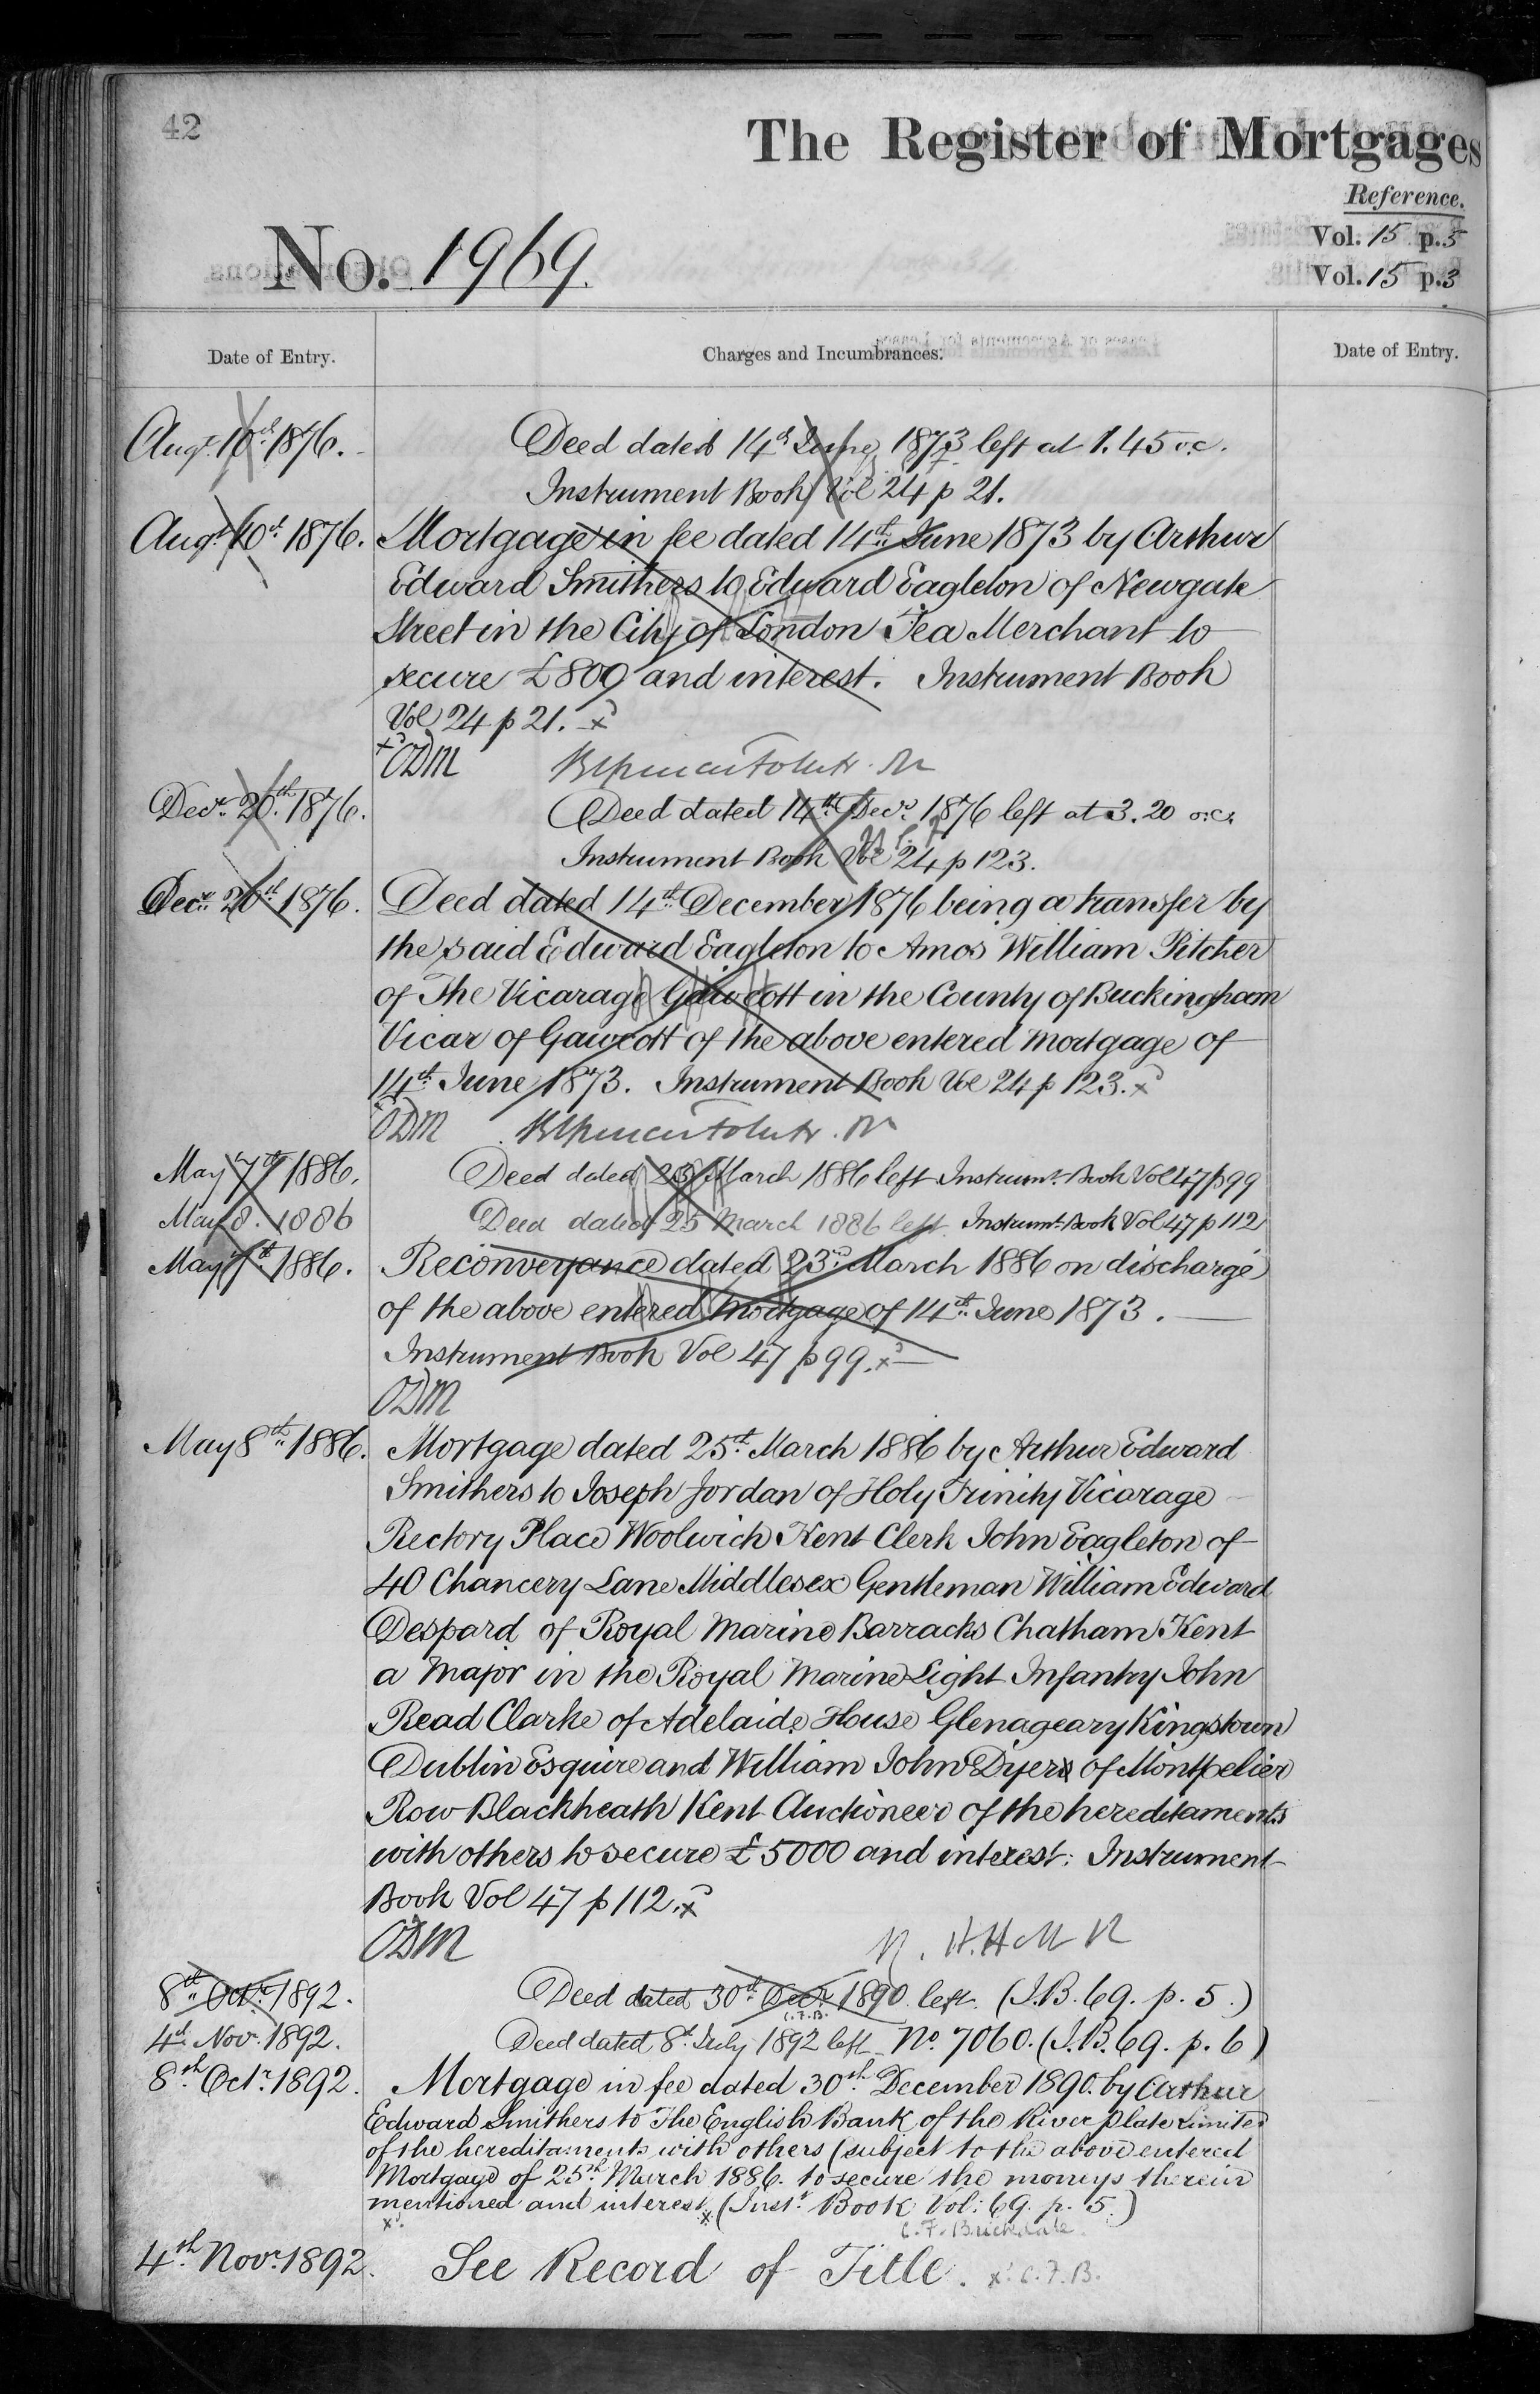 42
The Register of Mortgages
Reference.
Vol. 15 p. 5
Vol. 15 p. 3
No. 1969.
Date of Entry.
Charges and Incumbrances.
Date of Entry.
Augt. 10th 1876.
Deed dated 14th June 1873 left at 1.45 o.c.
Instrument Book Vol 24 p 21.
Augt. 10th 1876.
Mortgage in fee dated 14th June 1873 by Arthur
Edward Smithers to Edward Eagleton of Newgate
Street in the City of London Tea Merchant to
secure £800 and interest. Instrument Book
Vol 24 p 21. x
x ODM
Decr. 20th 1876.
Deed dated 14th Decr. 1876 left at 3.20 o.c.
Instrument Book Vol 24 p 123.
Decr. 20th 1876.
Deed dated 14th December 1876 being a transfer by
the said Edward Eagleton to Amos William Pitcher
of The Vicarage Gawcott in the County of Buckingham
Vicar of Gawcott of the above entered mortgage of
14th June 1873. Instrument Book Vol 24 p 123. x
ODM
May 7th 1886.
Deed dated 23 March 1886 left Instrumt. Book Vol 47 p 99
May 8. 1886
Deed dated 25 March 1886 left Instrumt. Book Vol 47 p 112
May 7th 1886.
Reconveyance dated 23rd March 1886 on discharge
of the above entered mortgage of 14th June 1873.
Instrument Book Vol 47 p 99. x
ODM
May 8th 1886.
Mortgage dated 25th March 1886 by Arthur Edward
Smithers to Joseph Jordan of Holy Trinity Vicarage
Rectory Place Woolwich Kent Clerk John Eagleton of
40 Chancery Lane Middlesex Gentleman William Edward
Despard of Royal Marine Barracks Chatham Kent
a Major in the Royal Marine Light Infantry John
Read Clarke of Adelaide House Glenageary Kingstown
Dublin Esquire and William John Dyer of Montpelier
Row Blackheath Kent Auctioneer of the hereditaments
with others to secure £5000 and interest: Instrument
Book Vol 47 p 112. x
ODM
8th Octr. 1892.
Deed dated 30th Decr. 1890 left. (I.B. 69. p. 5.)
C.F.B.
4th Nov. 1892.
Deed dated 8th July 1892 left No. 7060. (I.B. 69. p. 6)
8th Octr. 1892.
Mortgage in fee dated 30th December 1890. by Arthur
Edward Smithers to The English Bank of the River Plate Limited
of the hereditaments with others (subject to the above entered
Mortgage of 25th March 1886. to secure the moneys therein
mentioned and interest x (Inst. Book Vol: 69. p. 5.)
x C. F. Brickdale
4th Novr. 1892.
See Record of Title. x C.F.B.